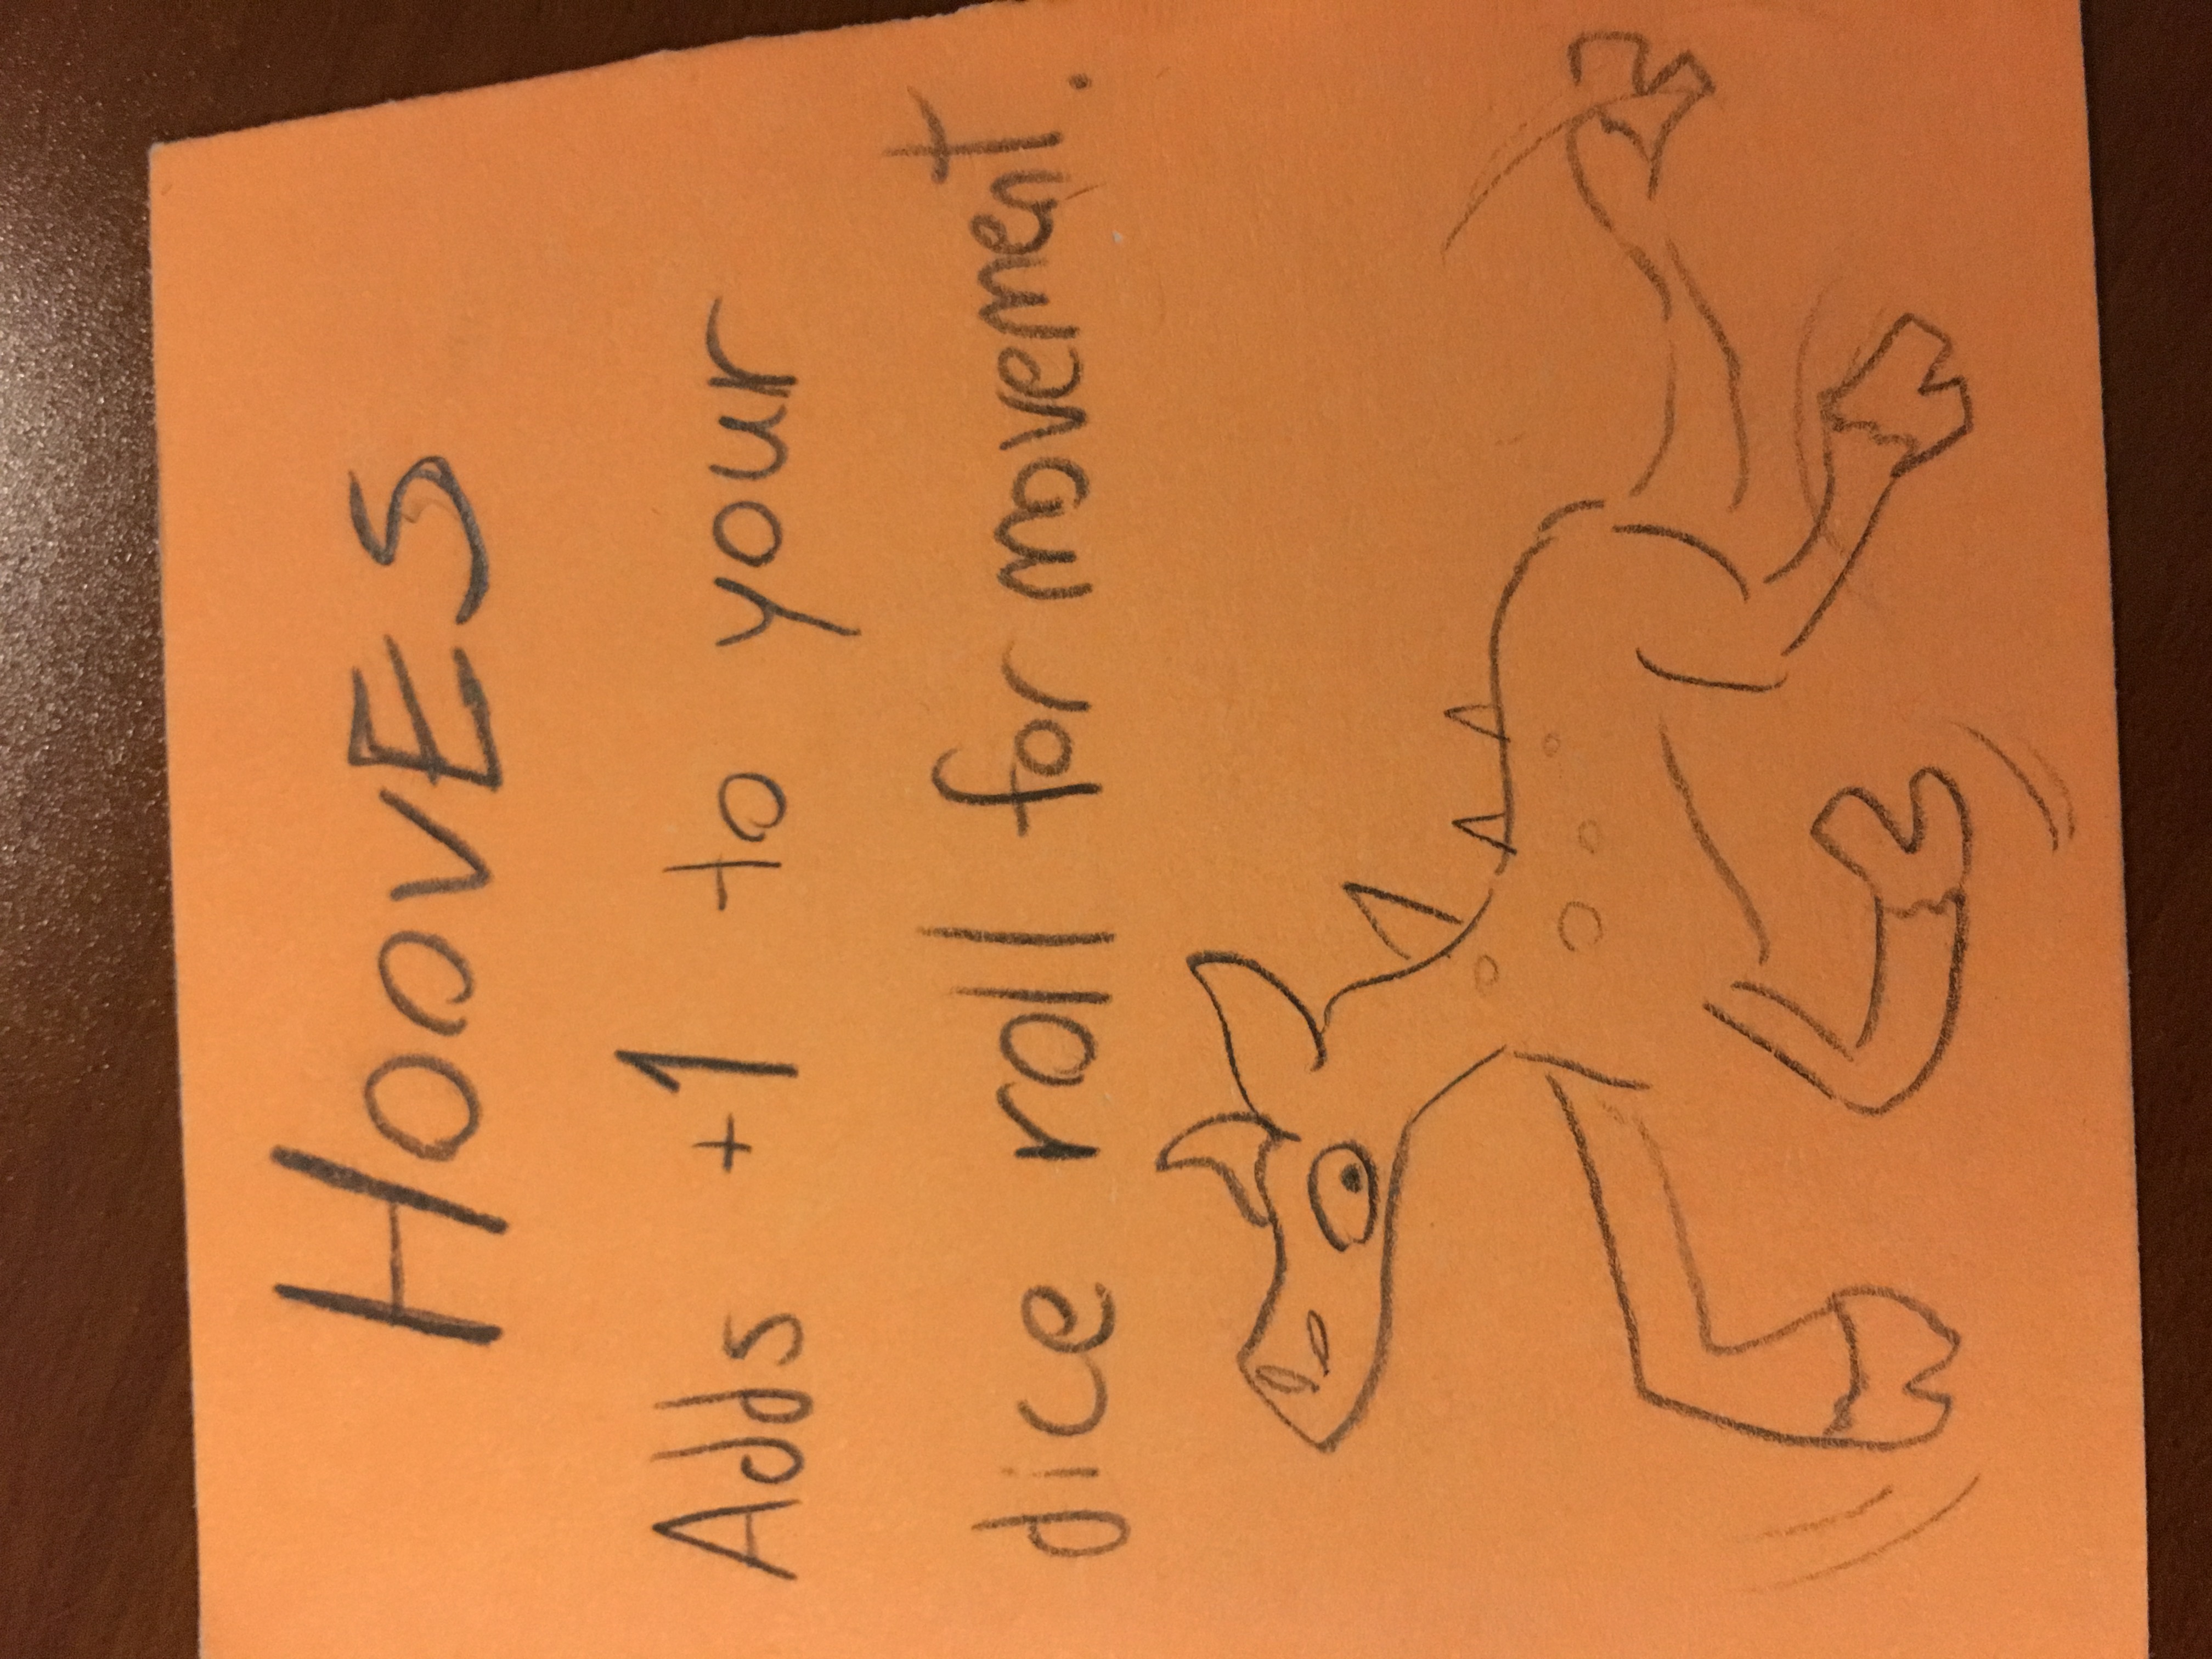 HOOVES
Adds +1 to your
dice roll for movement.